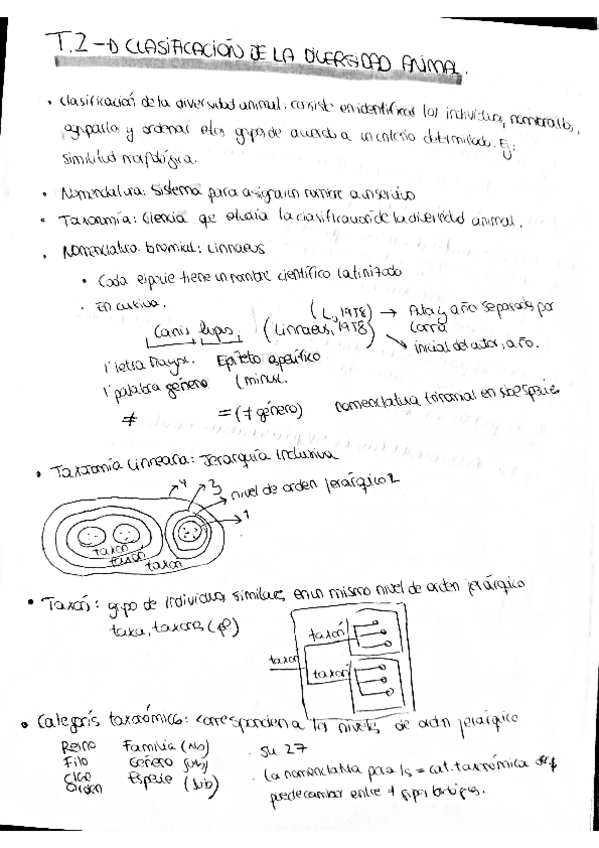 T.2 → CLASIFICACIÓN DE LA DIVERSIDAD ANIMAL.
• Clasificación de la diversidad animal: consiste en identificar los individuos, nombrarlos,
agruparlos y ordenar estos grupos de acuerdo a un criterio determinado. Ej:
similitud morfológica.
• Nomenclatura: Sistema para asignar un nombre a un ser vivo
• Taxonomía: Ciencia que estudia la clasificación de la diversidad animal.
• Nomenclatura binomial: Linnaeus
• Cada especie tiene un nombre científico latinizado
• En cursiva.
(L., 1958) → Autor y año separados por
coma
Canis lupus (Linnaeus, 1958)
inicial de autor, año.
1ª letra mayus. Epíteto específico
1ª palabra género (minus.
≠ = (≠ género) nomenclatura trinomial en subespecie
• Taxonomía Linneana: Jerarquía Inclusiva
4 3 nivel de orden jerárquico 2
1
taxón
taxón
taxón
• Taxón: grupo de individuos similares, en un mismo nivel de orden jerárquico
taxa, taxones (pl)
taxón
taxón
taxón
• Categorías taxonómicas: corresponden a los niveles de orden jerárquico
Reino Familia (No)
Filo Género (sub)
Clase Especie (sub)
Orden
. Su 27
. La nomenclatura para la = cat. taxonómica
puede cambiar entre ≠